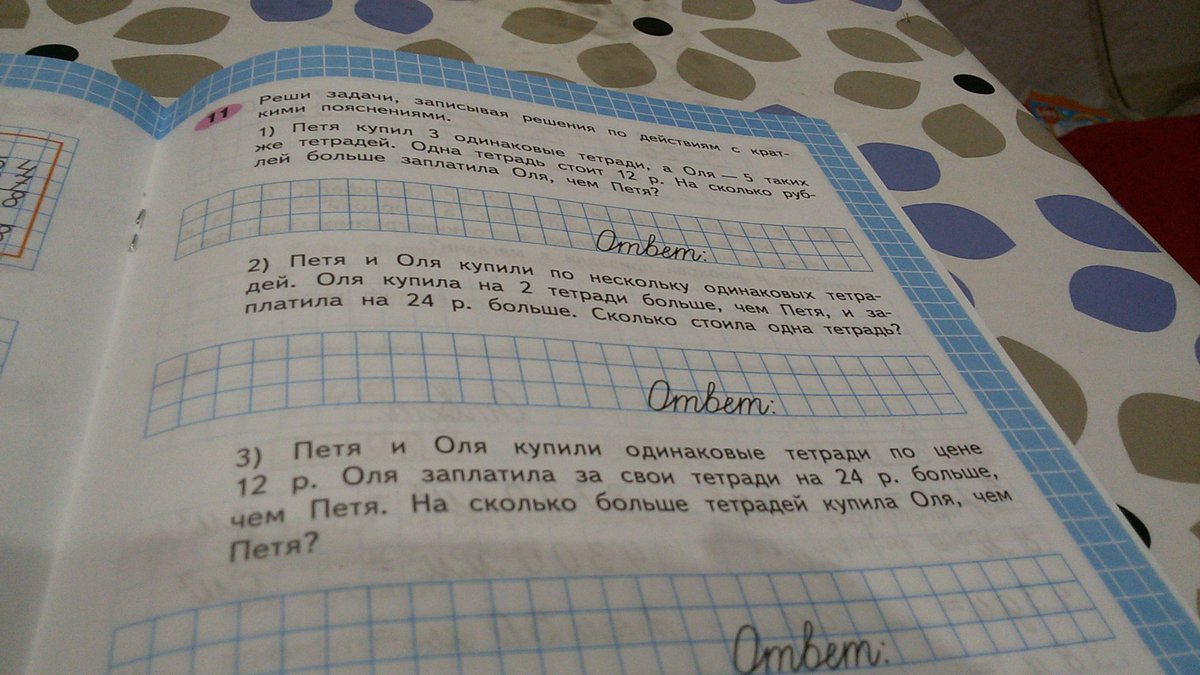 11 Реши задачи, записывая решения по действиям с крат-
кими пояснениями.
1) Петя купил 3 одинаковые тетради, а Оля — 5 таких
же тетрадей. Одна тетрадь стоит 12 р. На сколько руб-
лей больше заплатила Оля, чем Петя?
Ответ:
2) Петя и Оля купили по нескольку одинаковых тетра-
дей. Оля купила на 2 тетради больше, чем Петя, и за-
платила на 24 р. больше. Сколько стоила одна тетрадь?
Ответ:
3) Петя и Оля купили одинаковые тетради по цене
12 р. Оля заплатила за свои тетради на 24 р. больше,
чем Петя. На сколько больше тетрадей купила Оля, чем
Петя?
Ответ: